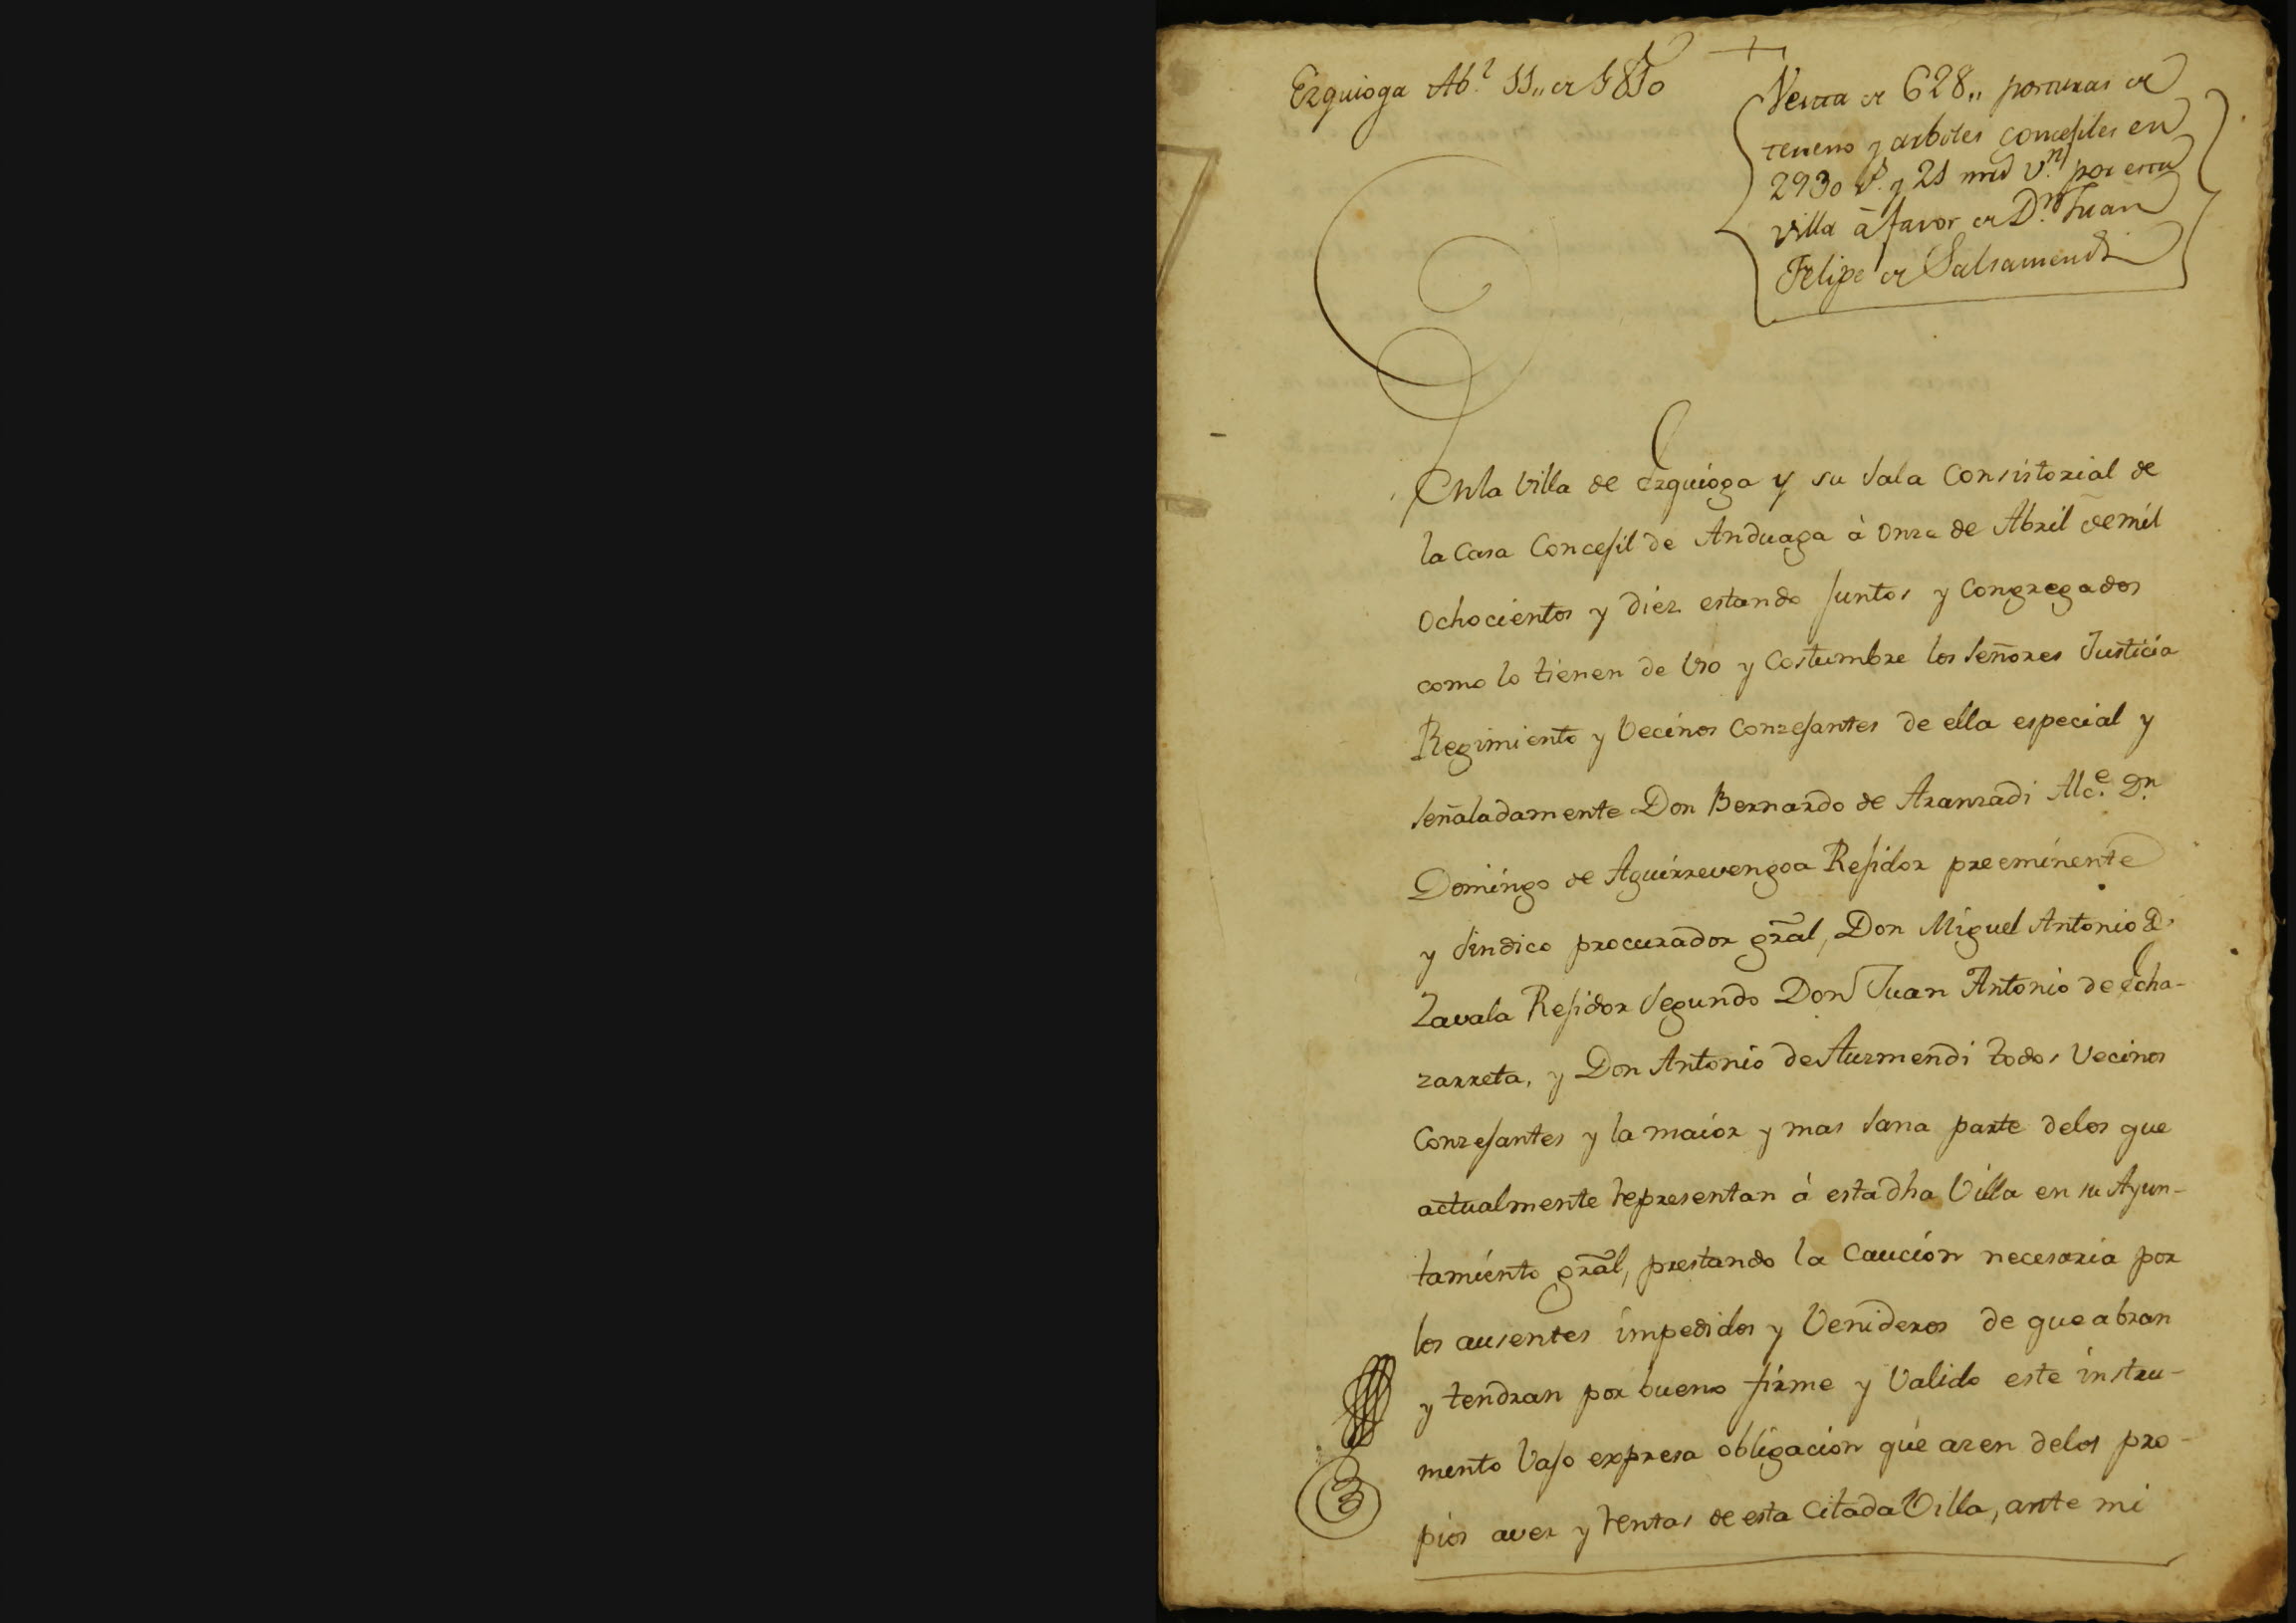 Ezquioga Ab.l 11,, de 1810
Venta de 628,, posturas de
terreno y arboles concejiles en
2930 r.s y 21 mrs v.n por esta
villa á favor de D.n Juan
Felipe de Salsamendi
En la Villa de Ezquioga y su Sala Consistorial de
la Casa Concejil de Anduaga à Onze de Abril de mil
Ochocientos y diez estando Juntos y Congregados
como lo tienen de Uso y Costumbre los Señores Justicia
Regimiento y Vecinos Conzejantes de ella especial y
señaladamente Don Bernardo de Aranzadi Alc.e D.n
Domingo de Aguirrevengoa Rejidor preeminente
y Sindico procurador gral, Don Miguel Antonio de
Zavala Rejidor Segundo Don Juan Antonio de Echa-
zarreta, y Don Antonio de Aurmendi todos Vecinos
Conzejantes y la maior y mas Sana parte delos que
actualmente representan á esta dha Villa en su Ayun-
tamiento gral, prestando la Caución necesaria por
los ausentes impedidos y Venideros de que abran
y tendran por bueno firme y Valido este instru-
mento Vajo expresa obligacion que azen delos pro-
pios aver y rentas de esta Citada Villa, ante mi